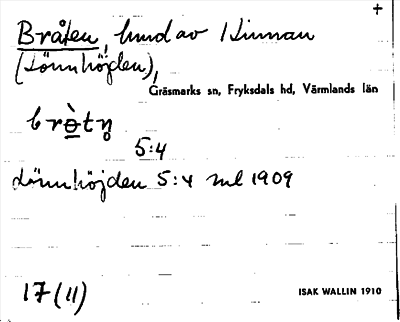 +
Bråten, hmd av Hinnan
(Lönnhöjden),
Gräsmarks sn, Fryksdals hd, Värmlands län
brò̱tn̥
5:4
Lönnhöjden 5:4 ml 1909
17 (11)
ISAK WALLIN 1910